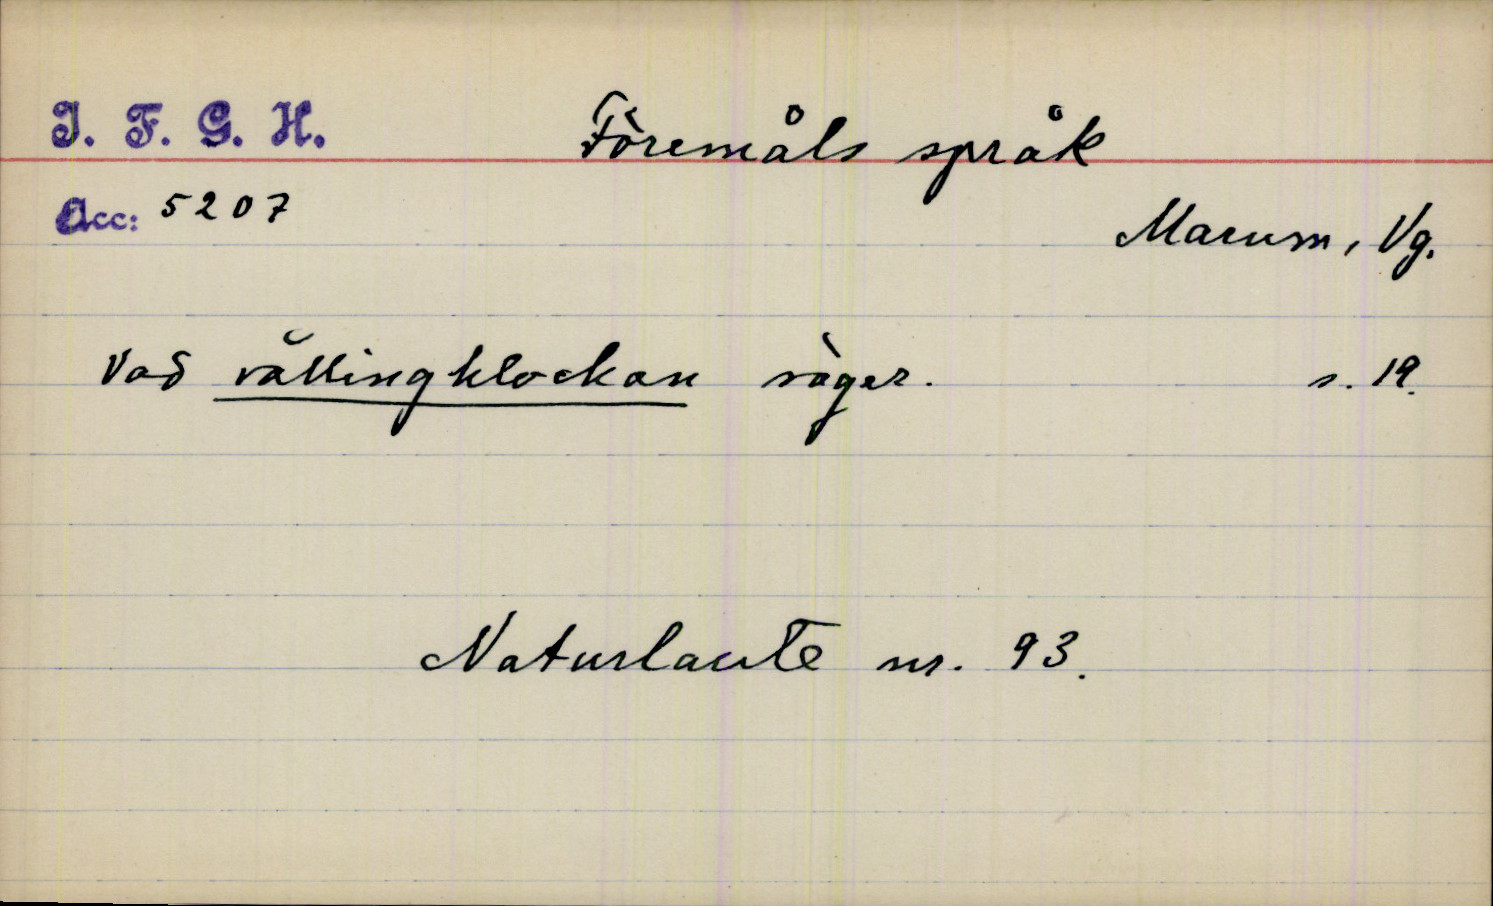 I. F. G. H.
Föremåls språk
Acc: 5207
Marum, Vg.
Vad vällingklockan säger. s. 19.
Naturlaute nr. 93.